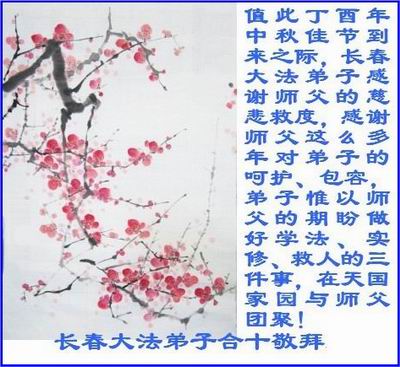 值此丁酉年
中秋佳节到
来之际，长春
大法弟子感
谢师父的慈
悲救度，感谢
师父这么多
年对弟子的
呵护、包容，
弟子惟以师
父的期盼做
好学法、实
修、救人的三
件事，在天国
家园与师父
团聚！
长春大法弟子合十敬拜